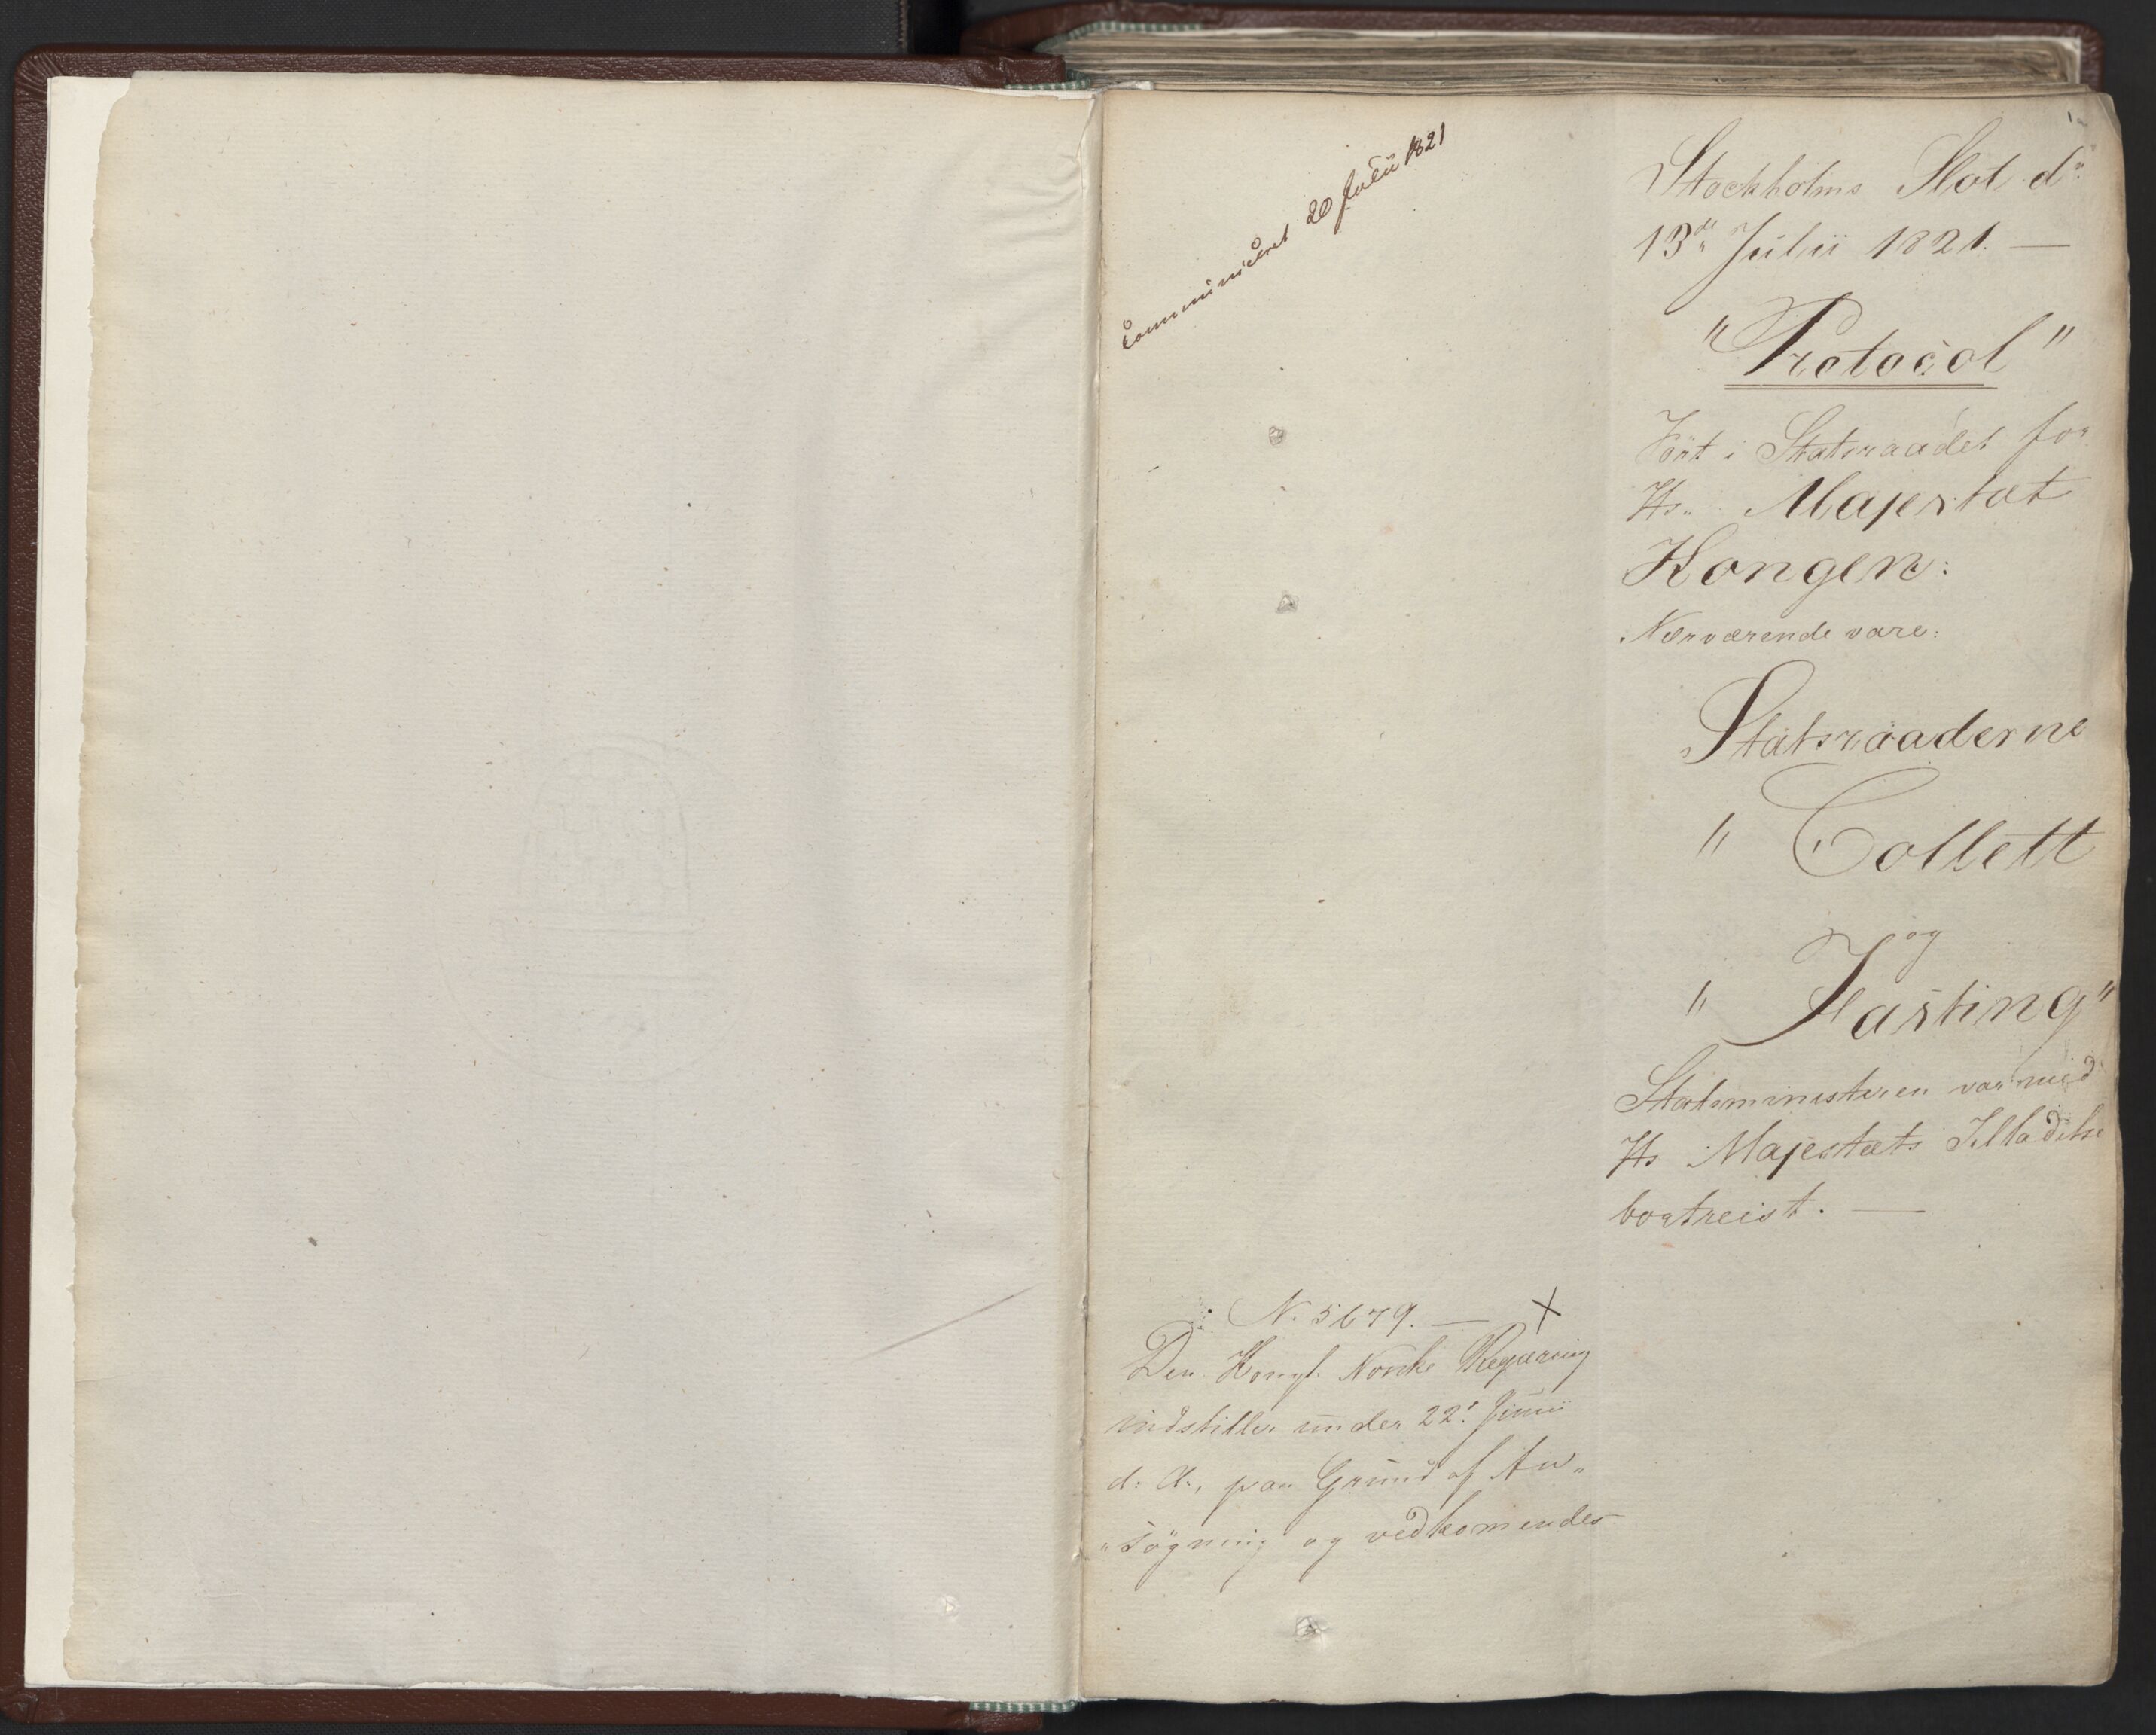 1
Communiceret 20 Julii 1821
Stockholms Slot d"
13de Julii 1821. —
"Protocol"
Fört i Statsraadet for
Hs. Majestæt
Kongen:
Nærværende vare:
Statsraaderne
" Collett
og
" Fasting"
Statsministeren var med
Hs Majestæts Tilladelse
bortreist. —
N. 5679. — X
Den Kongl. Norske Regjering
indstiller under 22d Junii
d: A:, paa Grund af An„
„søgning og vedkommendes